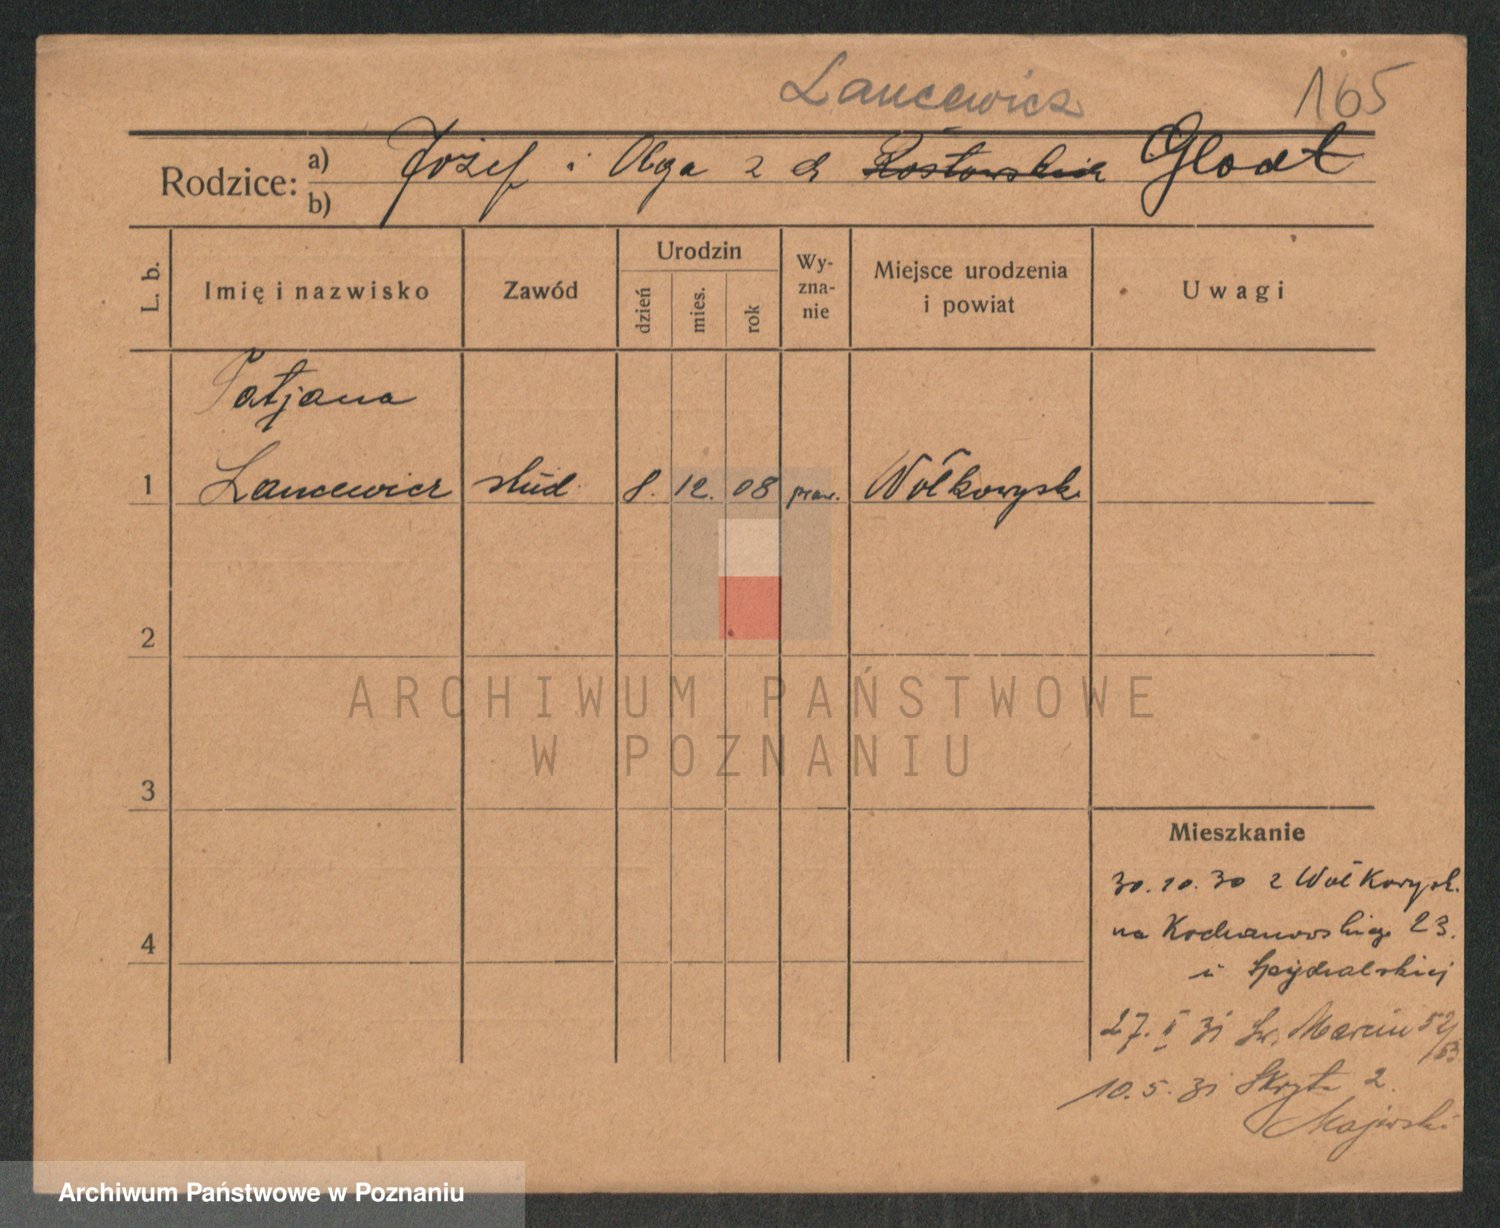 Lancewicz 165
Rodzice: a) Józef i Olga z d. Rostowskich Glodt
b)
L. b. Imię i nazwisko Zawód Urodzin dzień mies. rok Wy-zna-nie Miejsce urodzenia i powiat Uwagi
Tatjana
1 Lancewicz stud. 8. 12. 08 praw. Wołkowysk
2
3
4
Mieszkanie
30.10.30 z Wołkowysk.
na Kochanowskiego 23.
u Spychalskiej
27. II 31 Św. Marcin 52/53
10.5.31 Skryta 2.
Majewski
ARCHIWUM PAŃSTWOWE
W POZNANIU
Archiwum Państwowe w Poznaniu